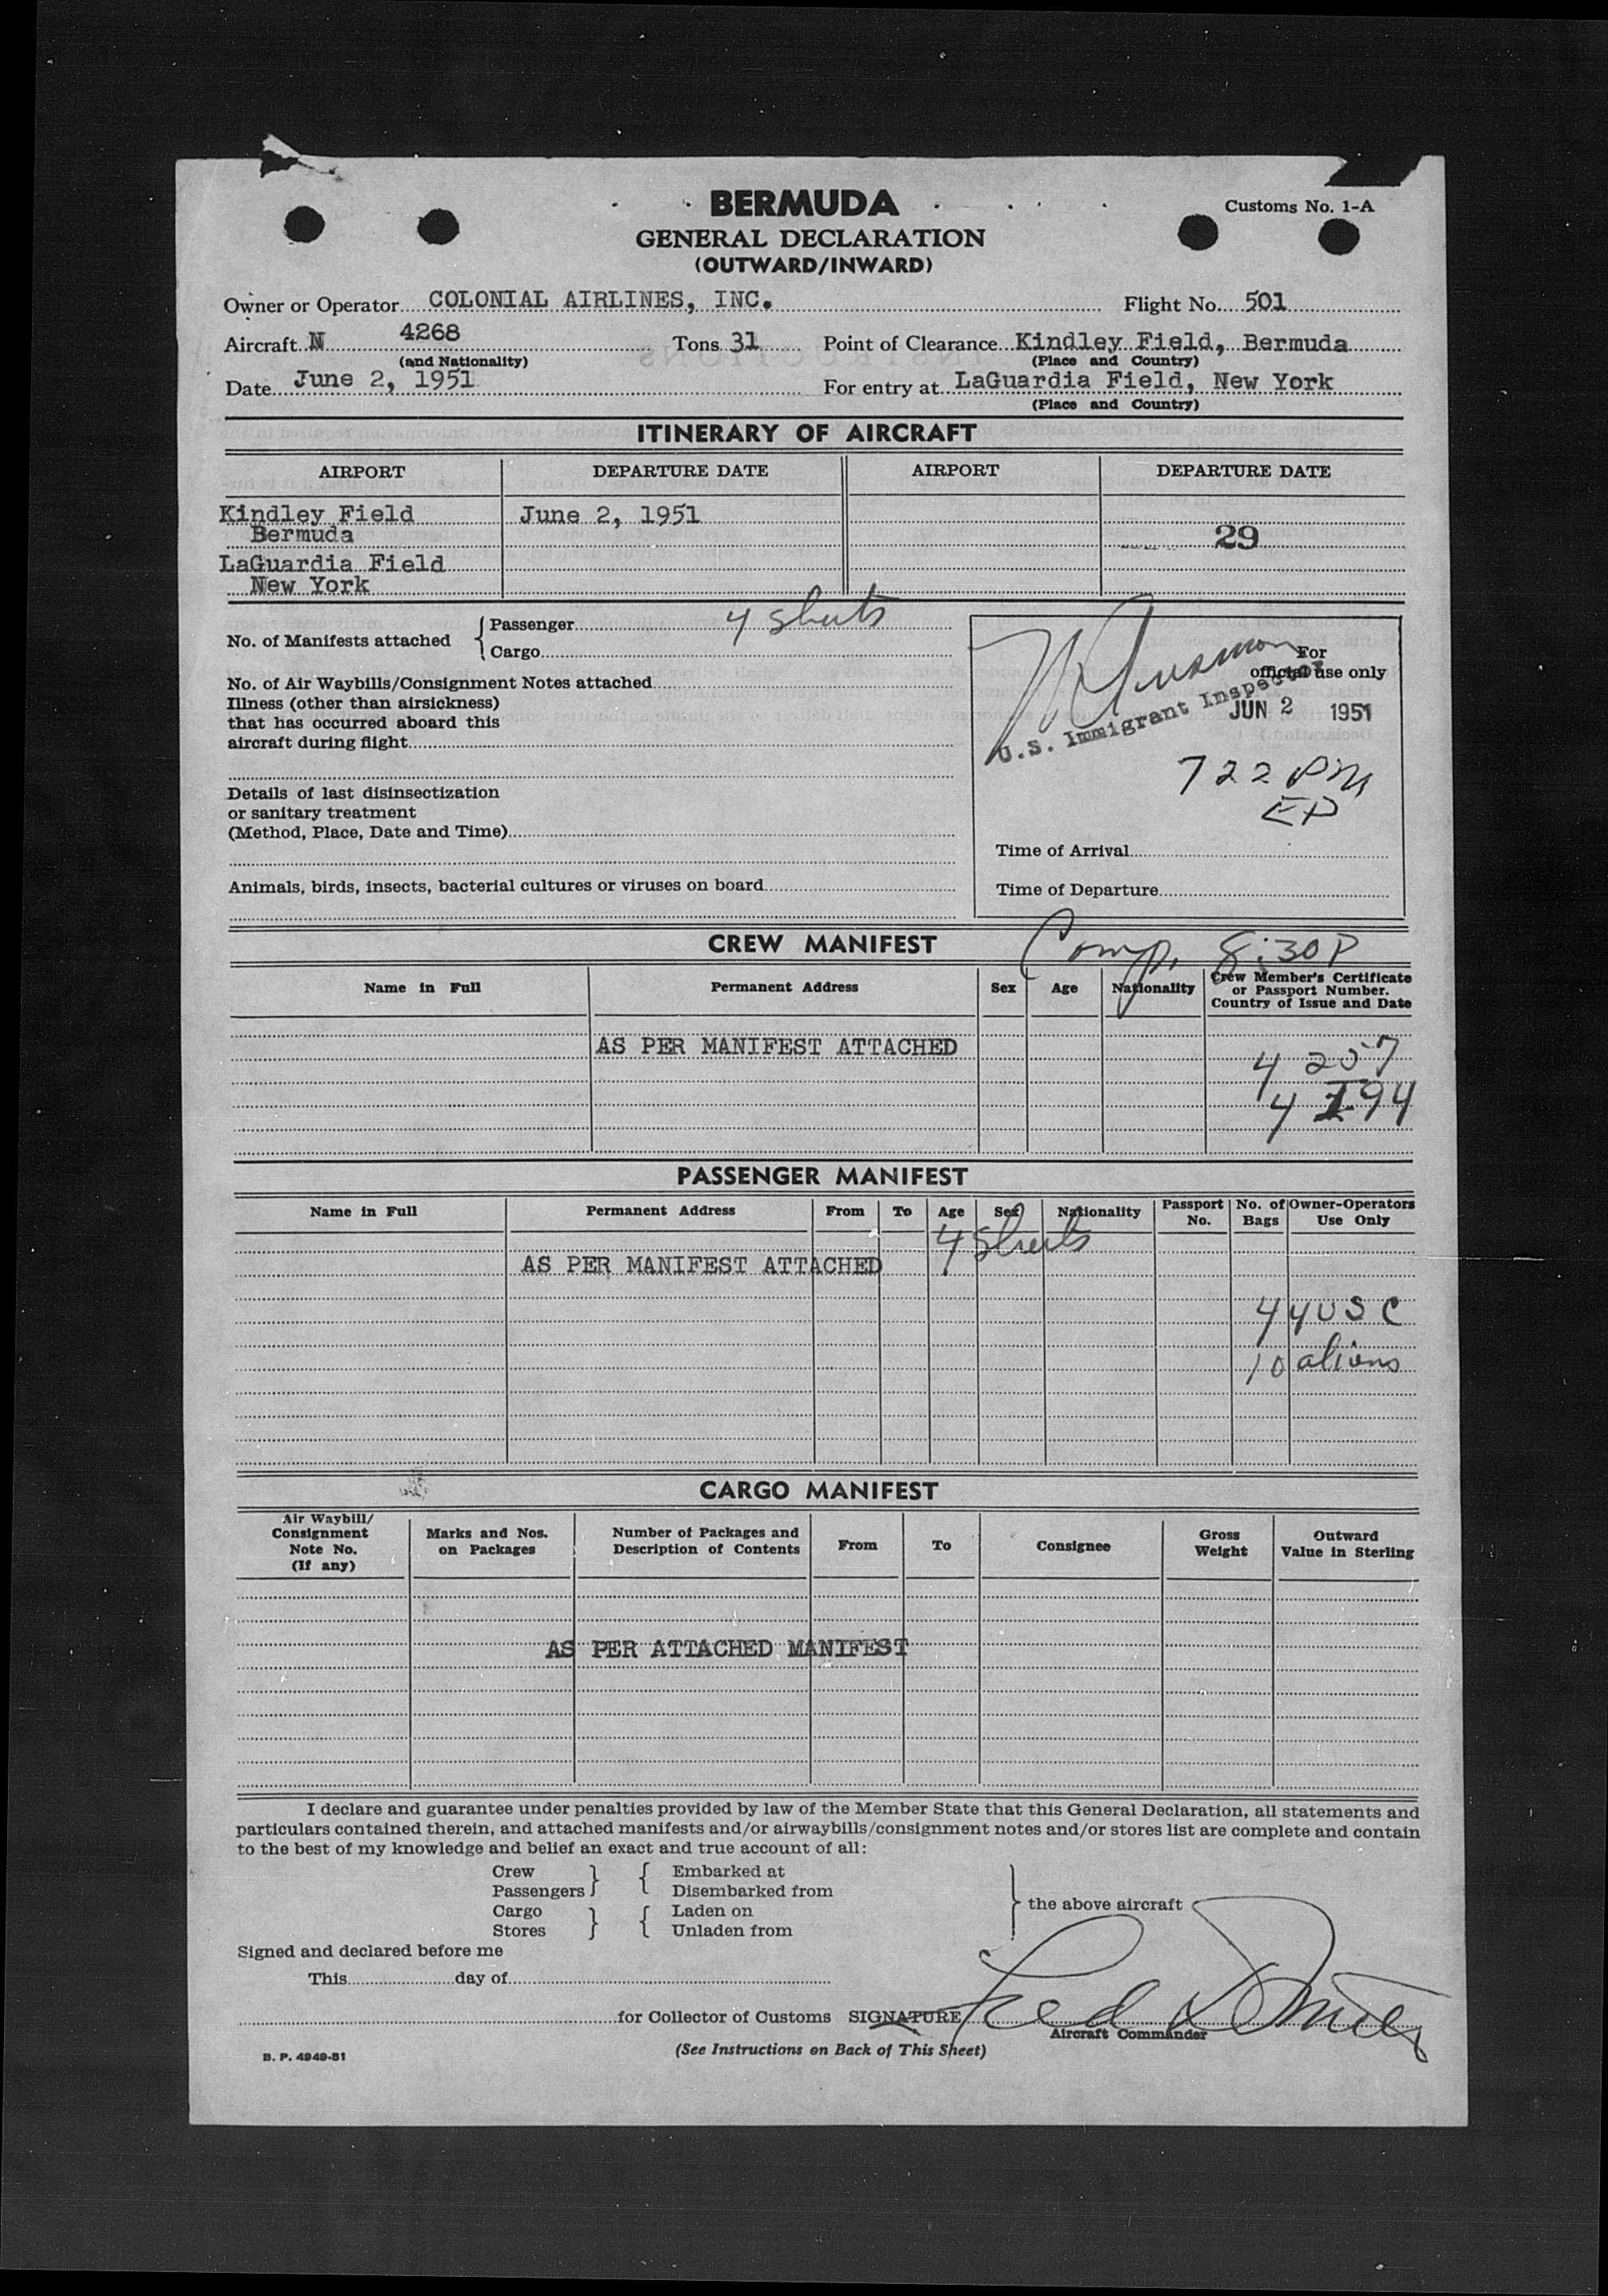 BERMUDA
Customs No. 1-A
GENERAL DECLARATION
(OUTWARD/INWARD)
Owner or Operator COLONIAL AIRLINES, INC. Flight No. 501
Aircraft N 4268 Tons 31 Point of Clearance Kindley Field, Bermuda
(and Nationality) (Place and Country)
Date June 2, 1951 For entry at LaGuardia Field, New York
(Place and Country)
ITINERARY OF AIRCRAFT
AIRPORT DEPARTURE DATE AIRPORT DEPARTURE DATE
Kindley Field June 2, 1951
Bermuda 29
LaGuardia Field
New York
No. of Manifests attached { Passenger 4 sheets
Cargo
For
official use only
No. of Air Waybills/Consignment Notes attached
U.S. Immigrant Inspector
JUN 2 1951
Illness (other than airsickness)
that has occurred aboard this
aircraft during flight
722 PM
EP
Details of last disinsectization
or sanitary treatment
(Method, Place, Date and Time)
Time of Arrival
Animals, birds, insects, bacterial cultures or viruses on board
Time of Departure
CREW MANIFEST Comp. 8:30 P
Name in Full Permanent Address Sex Age Nationality Crew Member's Certificate
or Passport Number.
Country of Issue and Date
AS PER MANIFEST ATTACHED
4 257
4 194
PASSENGER MANIFEST
Name in Full Permanent Address From To Age Sex Nationality Passport No. No. of Bags Owner-Operators Use Only
4 sheets
AS PER MANIFEST ATTACHED
44 USC
10 aliens
CARGO MANIFEST
Air Waybill/
Consignment
Note No.
(If any)
Marks and Nos.
on Packages
Number of Packages and
Description of Contents
From To Consignee
Gross
Weight
Outward
Value in Sterling
AS PER ATTACHED MANIFEST
I declare and guarantee under penalties provided by law of the Member State that this General Declaration, all statements and
particulars contained therein, and attached manifests and/or airwaybills/consignment notes and/or stores list are complete and contain
to the best of my knowledge and belief an exact and true account of all:
Crew } { Embarked at
Passengers } { Disembarked from
} the above aircraft
Cargo } { Laden on
Stores } { Unladen from
Signed and declared before me
This day of
for Collector of Customs SIGNATURE Fred
Aircraft Commander
(See Instructions on Back of This Sheet)
B. P. 4949-51